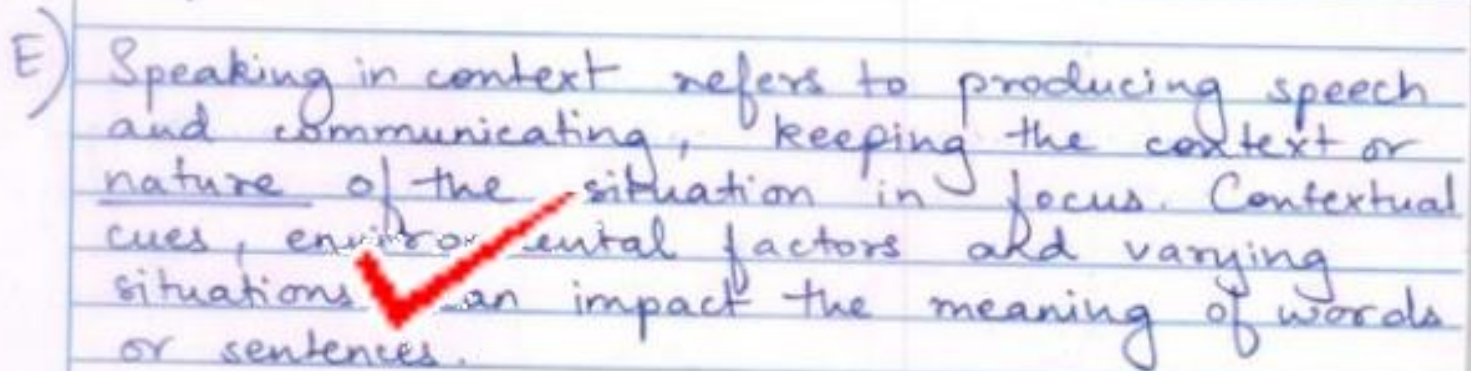 E) Speaking in context refers to producing speech
and communicating, keeping the context or
nature of the situation in focus. Contextual
cues, environmental factors and varying
situations can impact the meaning of words
or sentences.